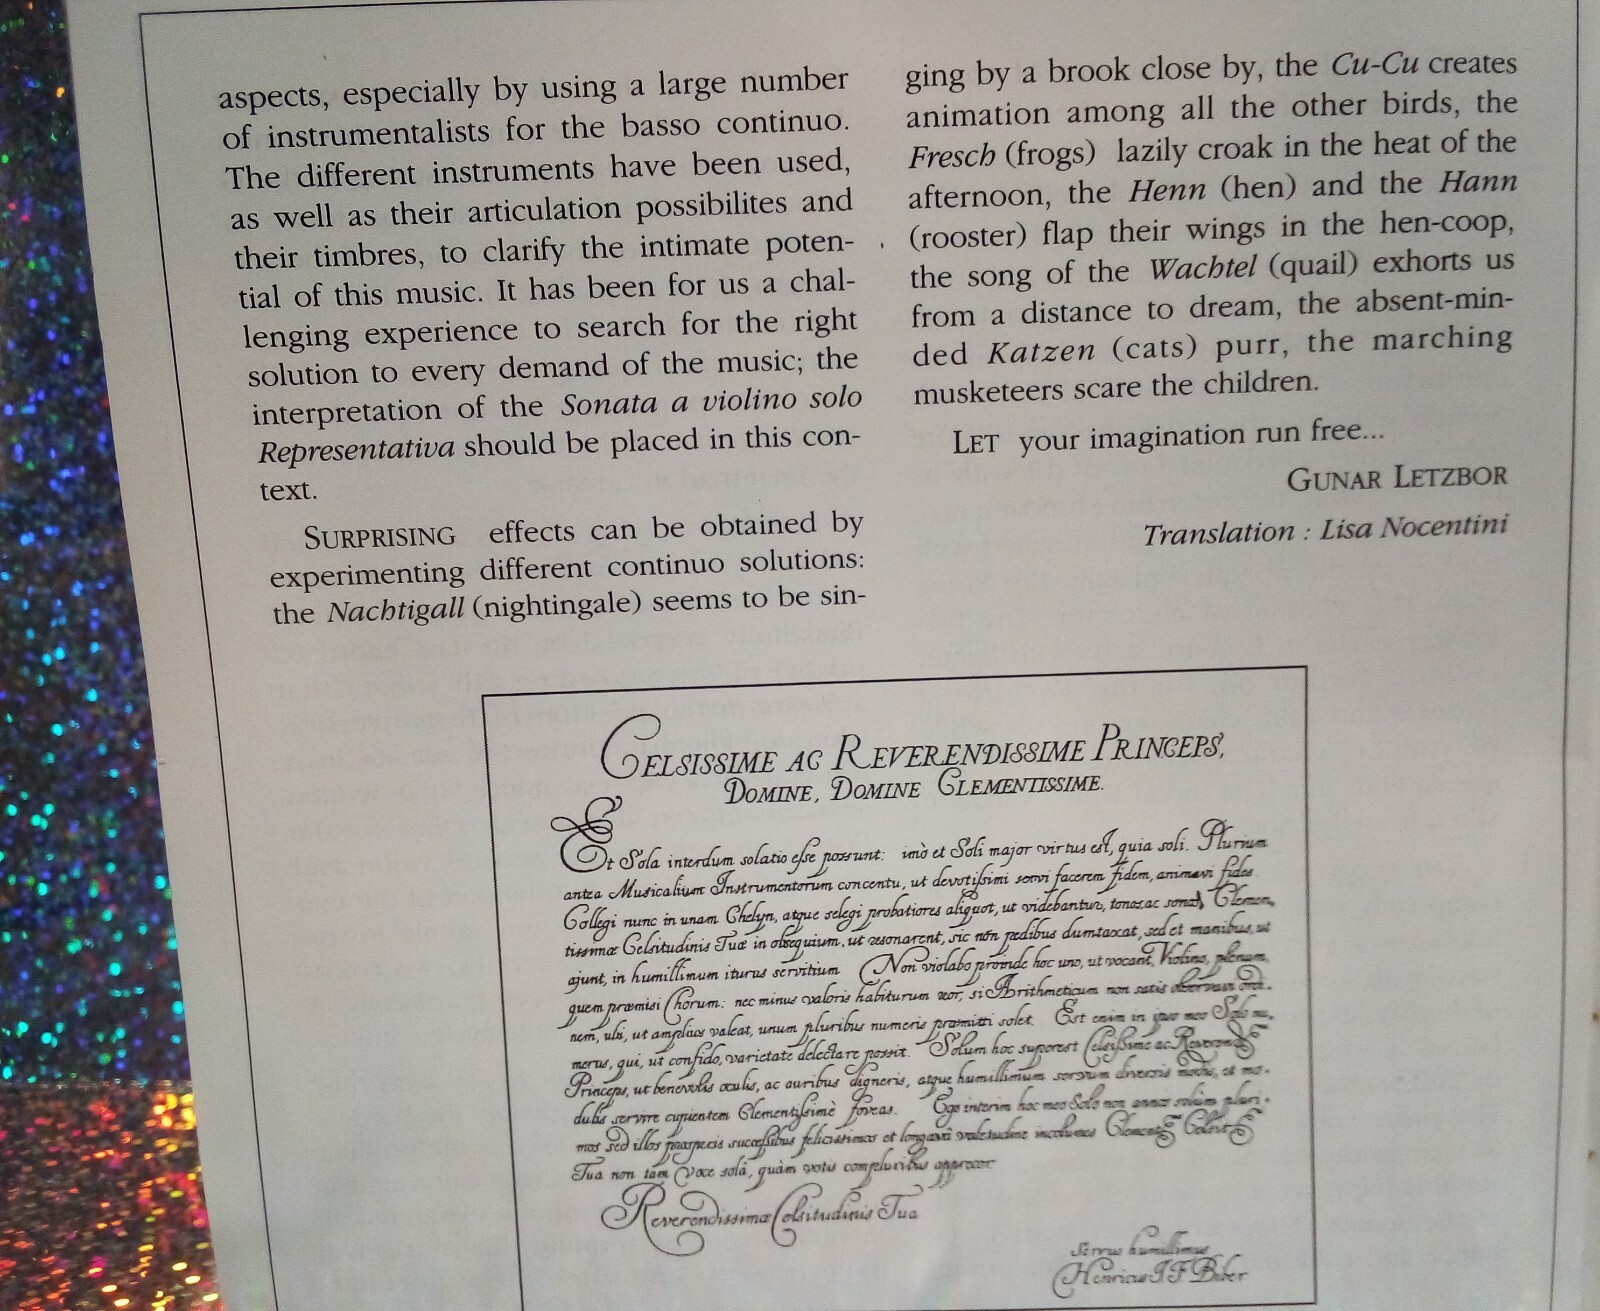 aspects, especially by using a large number
of instrumentalists for the basso continuo.
The different instruments have been used,
as well as their articulation possibilites and
their timbres, to clarify the intimate poten-
tial of this music. It has been for us a chal-
lenging experience to search for the right
solution to every demand of the music; the
interpretation of the Sonata a violino solo
Representativa should be placed in this con-
text.
SURPRISING effects can be obtained by
experimenting different continuo solutions:
the Nachtigall (nightingale) seems to be sin-
ging by a brook close by, the Cu-Cu creates
animation among all the other birds, the
Fresch (frogs) lazily croak in the heat of the
afternoon, the Henn (hen) and the Hann
(rooster) flap their wings in the hen-coop,
the song of the Wachtel (quail) exhorts us
from a distance to dream, the absent-min-
ded Katzen (cats) purr, the marching
musketeers scare the children.
LET your imagination run free...
GUNAR LETZBOR
Translation : Lisa Nocentini
CELSISSIME AC REVERENDISSIME PRINCEPS,
DOMINE, DOMINE CLEMENTISSIME.
Et Sola interdum solatio esse possunt: imò et Soli major virtus est, quia soli. Plurium
antea Musicalium Instrumentorum concentu, ut devotissimi servi facerem fidem, animavi fides.
Collegi nunc in unam Chelyn, atque selegi probatiores aliquot, ut videbantur, tonos, ac sonos, Clemen,
tissimæ Celsitudinis Tuæ in obsequium, ut resonarent, sic non pedibus dumtaxat, sed et manibus, ut
ajunt, in humillimum iturus servitium Non violabo proinde hoc uno, ut vocant, Violino, plenum,
quem præmisi Chorum: nec minus valoris habiturum reor, si Arithmeticum non satis observavi ordi.
nem, ubi, ut amplius valeat, unum pluribus numeris præmitti solet. Est enim in ipso meo Solo nu.
merus, qui, ut confido, varietate delectare possit. Solum hoc superest Celsissime ac
Princeps, ut benevolis oculis, ac auribus digneris, atque humillimum servum diversis modis, et mo.
dulis servire cupientem Clementissimè foveas. Ego interim hoc meo Solo non annos solum pluri.
mos sed illos prosperis successibus felicissimos et longævâ valetudine incolumes
Tua non tam Voce solâ, quàm votis compluribus apprecor
Reverendissimæ Celsitudinis Tua
Servus humillimus
Henricus I F Biber